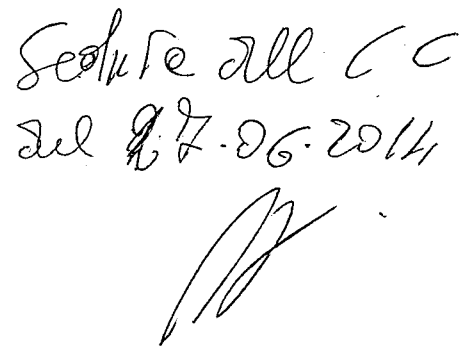 Seduta del CC
del 27.06.2014